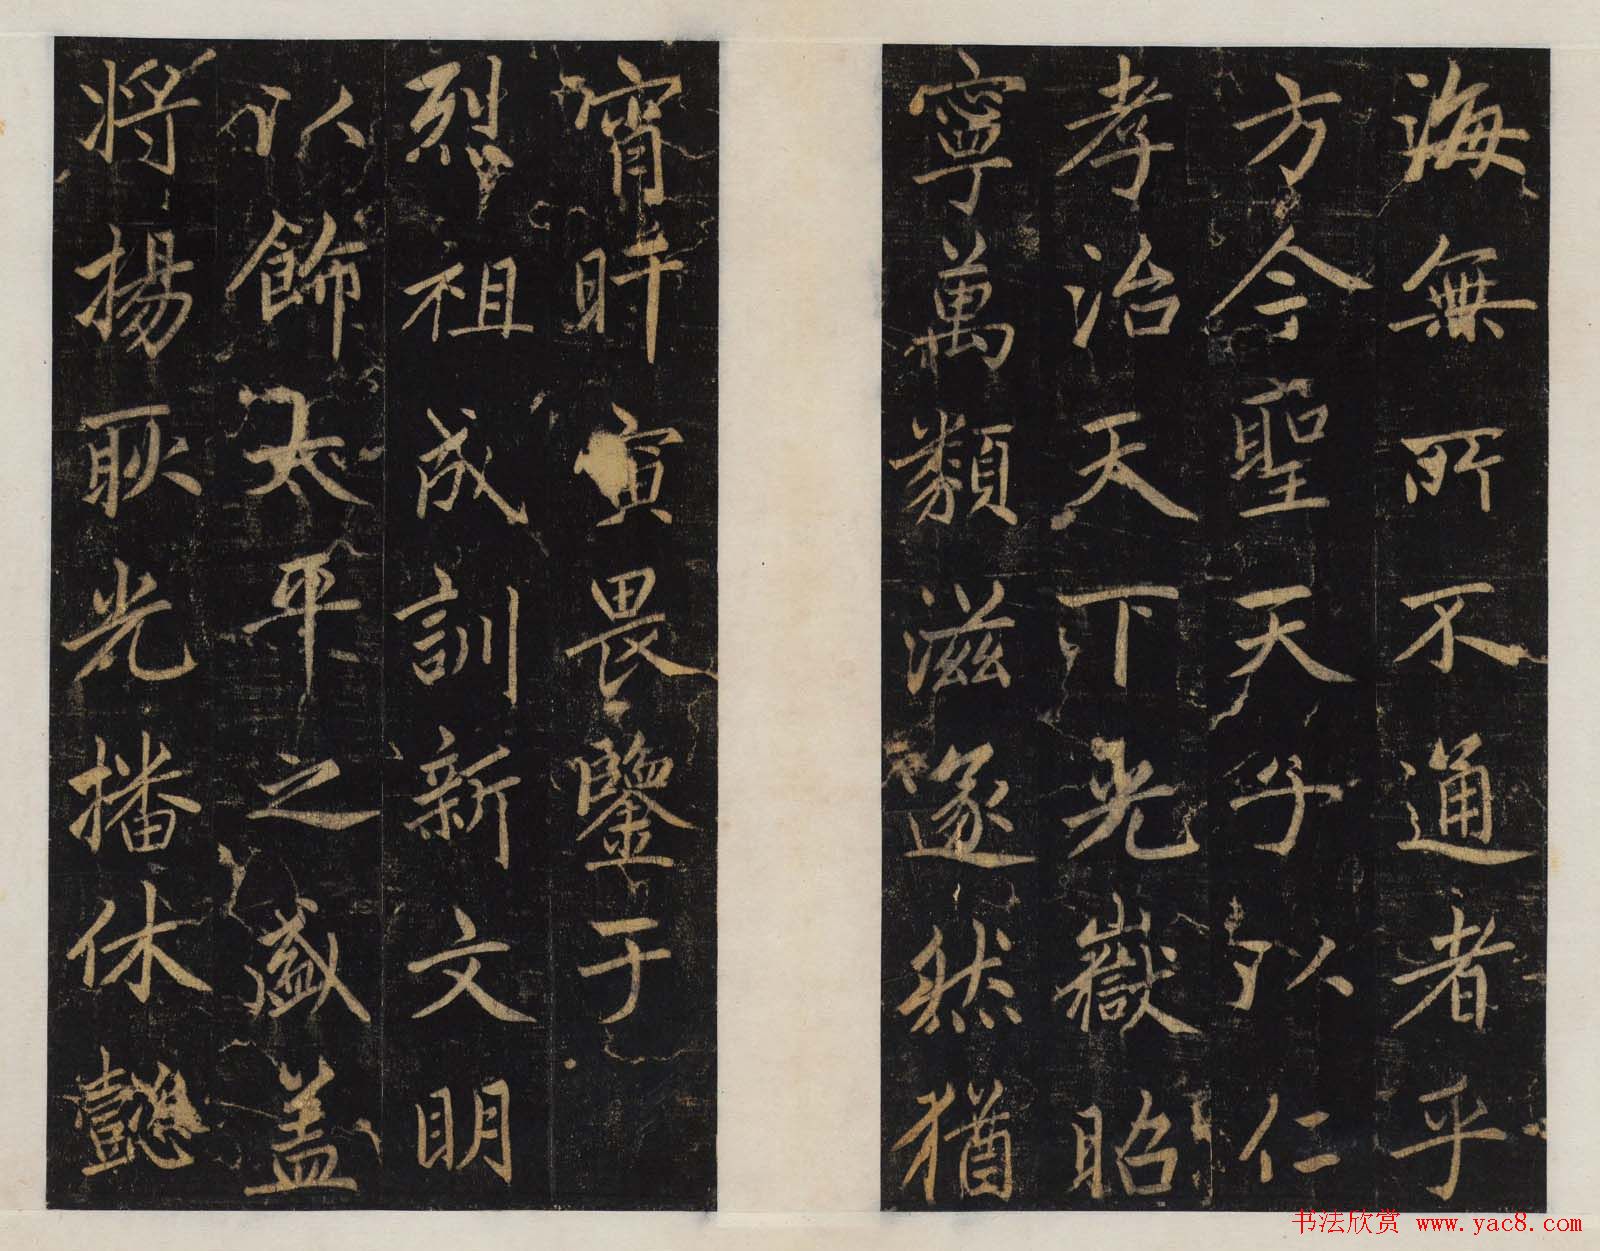 海無所不通者乎
方今聖天子以仁
孝治天下光嶽昭
寧萬類滋遂然猶
宵旰寅畏鑒于
烈祖成訓新文明
以飾太平之盛盖
將揚耿光播休懿
书法欣赏 www.yac8.com